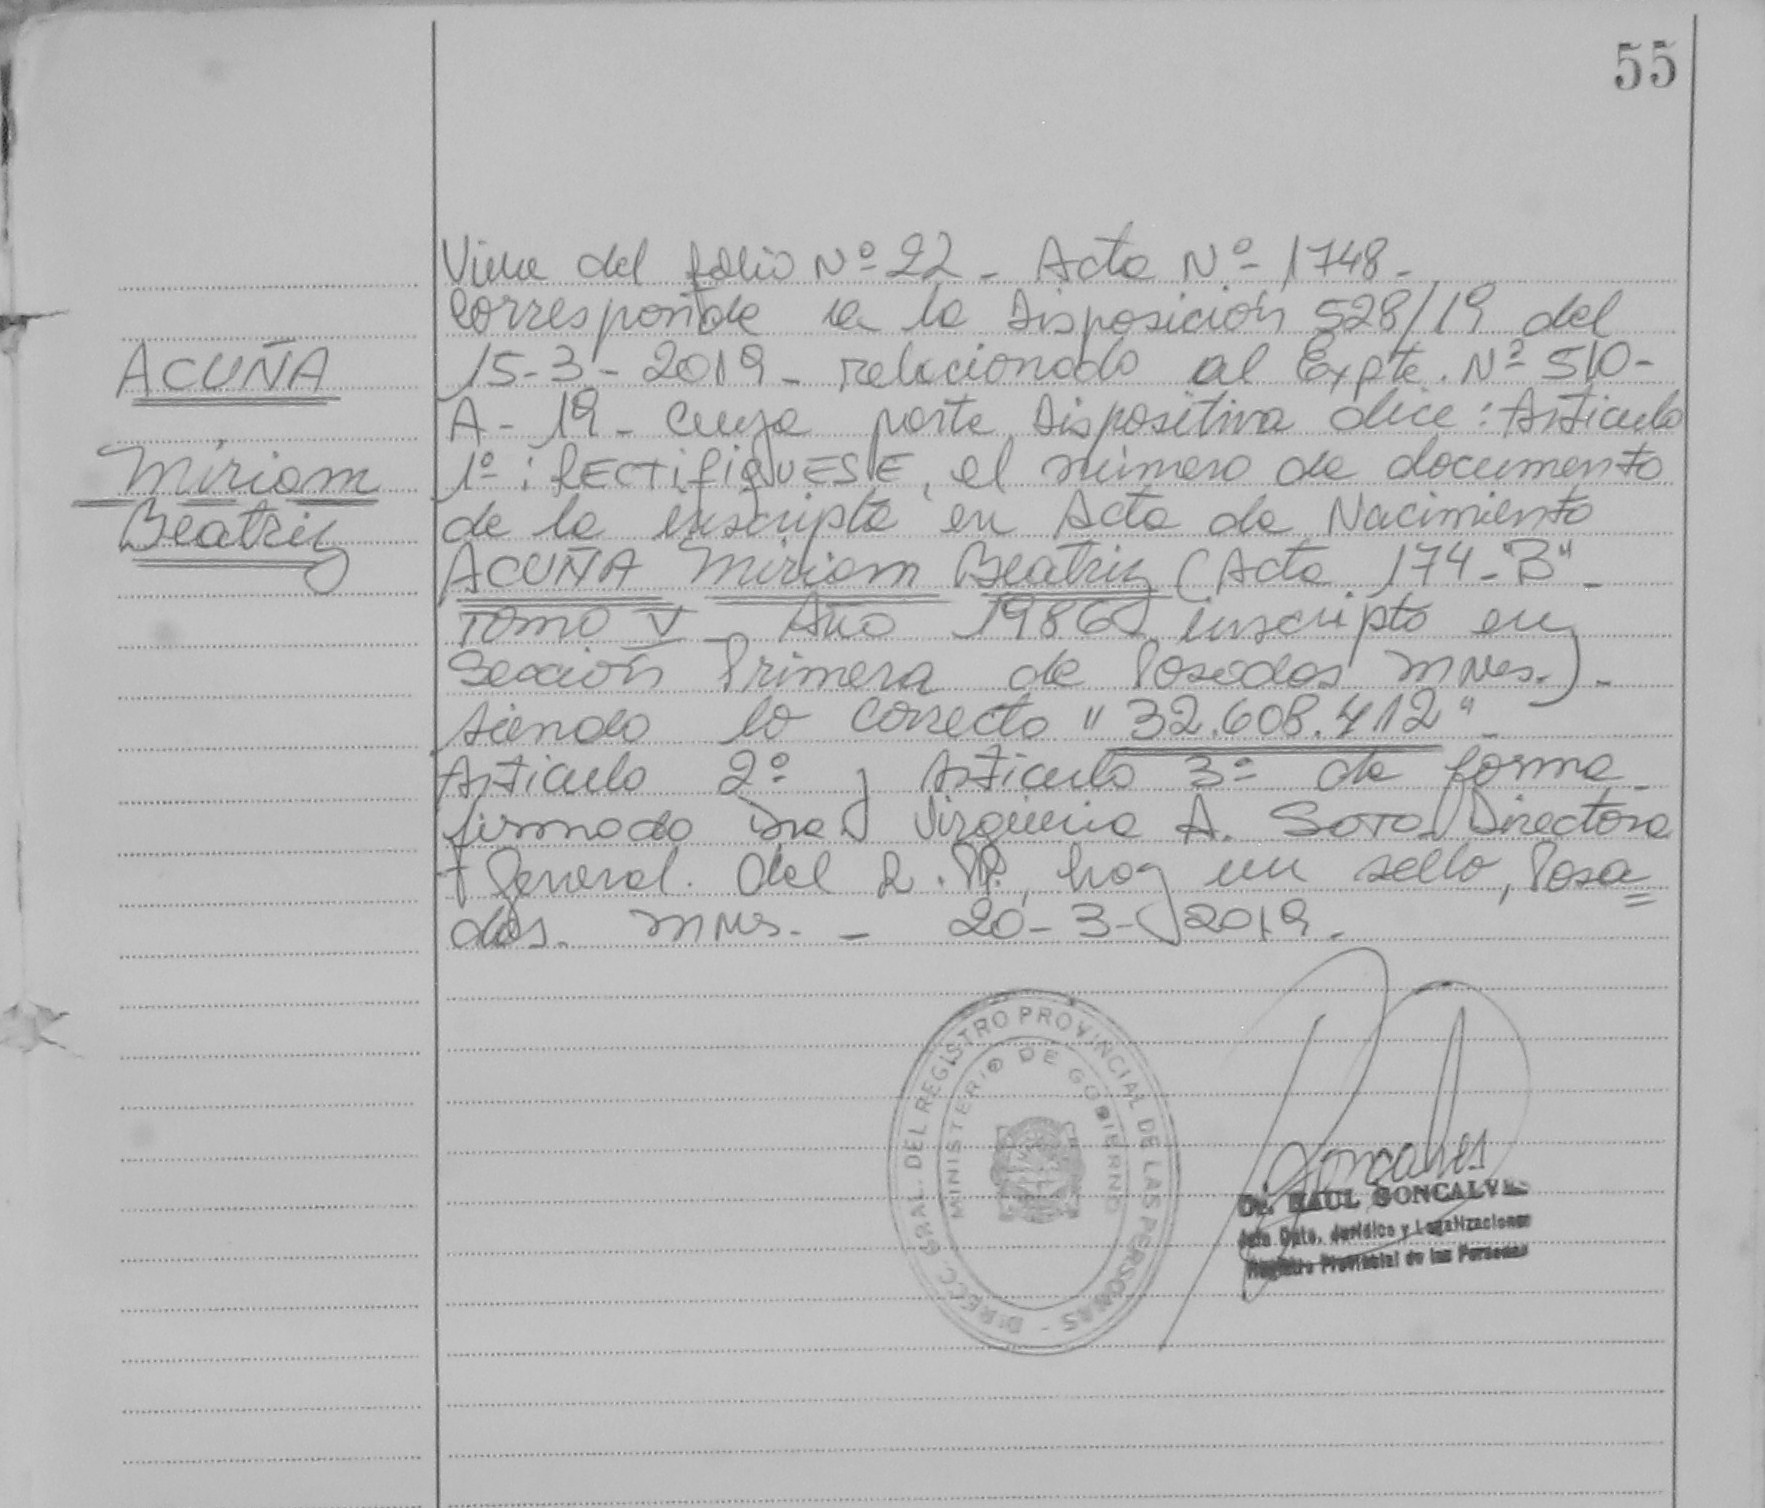 55
Viene del folio Nº 22 - Acta Nº 1748 -
Corresponde a la Disposición 528/19 del
15-3-2019 - relacionado al Expte. Nº 510-
A-19 - cuya parte dispositiva dice: Artículo
1º: RECTIFIQUESE, el número de documento
de la inscripta en Acta de Nacimiento
ACUÑA Miriam Beatriz (Acta 174 - "B" -
TOMO V - Año 1986, inscripta en
Sección Primera de Posadas Mnes.) -
siendo lo correcto "32.608.412" -
Artículo 2º y Artículo 3º de forma
firmado Dra. Virginia A. Soto Directora
General. del R.PP. hay un sello, Posa=
das. Mnes. - 20-3-2019.
ACUÑA
Miriam
Beatriz
DIRECC. GRAL. DEL REGISTRO PROVINCIAL DE LAS PERSONAS -
MINISTERIO DE GOBIERNO
Goncalves
Dr. RAUL GONCALVES
Jefe Dpto. Jurídico y Legalizaciones
Registro Provincial de las Personas